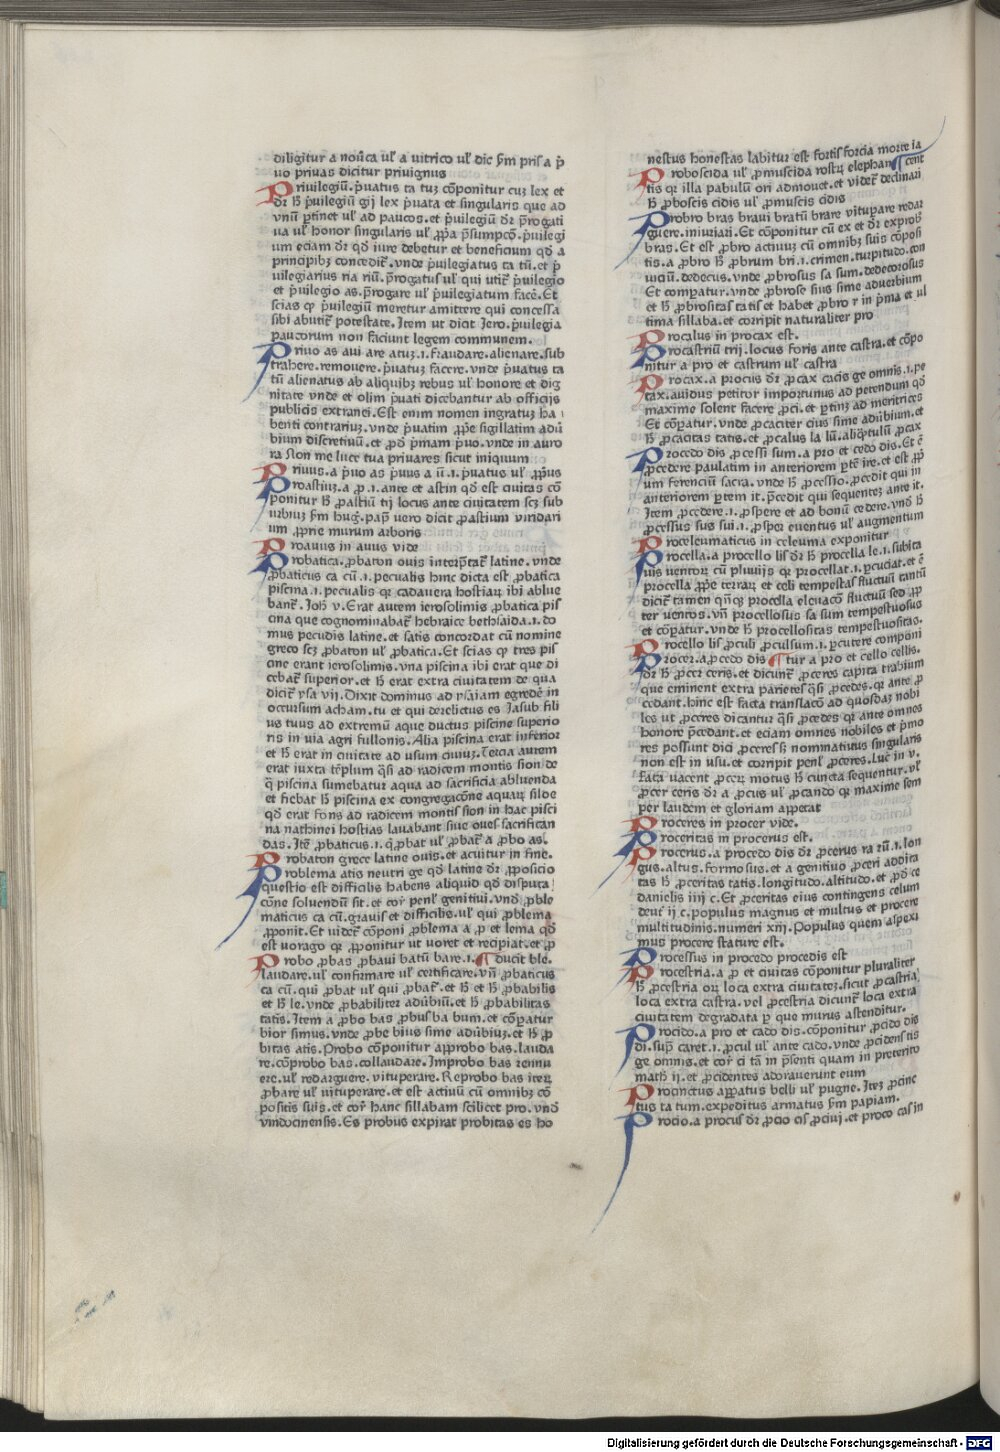 diligitur a nou̅ca ul̛ a vitrico ul̛ dic̛ ẜm pris̛ a p̛
vo privas dicitur privignus
Privilegiu̅. p̛uatus ta tuʒ co̅ponitur cuʒ lex et
dr̛ h̛ p̛uilegiu̅ gij lex p̛uata et singularis que ad
vnu̅ ꝑtinet ul̛ ad paucos. et p̛uilegiu̅ dr̛ p̅rogati
ua ul̛ honor singularis ul̛ ꝓp̛a p̅sumpco̅. p̛uilegi
um eciam dr̛ qd̛ iure debetur et beneficium qd̛ a
principibʒ concedit᷑. vnde p̛uilegiatus ta tu̅. et p̛
uilegiarius ria riu̅. p̅rogatus̛ ul̛ qui utit᷑ p̛uilegio
et p̛uilegio as. p̅rogare ul̛ p̛uilegiatum face̅. Et
scias qp̛ p̛uilegiu̅ meretur amittere qui concessa
sibi abutit᷑ potestate. Item ut dicit Jero. p̛uilegia
paucorum non faciunt legem communem.
Privo as aui are atuʒ .i. fraudare. alienare. sub
trahere. remouere. p̛uatuʒ facere. vnde p̛uatus ta
tu̅ alienatus ab aliquibʒ rebus ul̛ honore et dig
nitate vnde et olim p̛uati dicebantur ab officijs
publicis extranei. Est enim nomen ingratuʒ ha
benti contrariuʒ. vnde p̛uatim ꝓp̛e sigillatim adu̅
bium discretiuu̅. et ꝓd̛ p̛mam p̛uo. vnde in auro
ra Non me luce tua privares sicut iniquum
Privus. a p̛uo as p̛uus a u̅ .i. p̛uatus ul̛ ꝓp̛us
Proastiuʒ. a ꝓ .i. ante et astin qd̛ est ciuitas co̅
ponitur h̛ ꝓastiu̅ tij locus ante ciuitatem scʒ sub
urbiuʒ ẜm hug̛. pap̛ vero dicit ꝓastium viridari
um ꝓprie murum arboris
Proauus in auus vide
Probatica. ꝓbaton ouis interp̛tat᷑ latine. vnde
ꝓbaticus ca cu̅ .i. pecualis hinc dicta est ꝓbatica
piscina .i. pecualis qr̛ cadauera hostiaꝝ ibi ablue
bant᷑. Joh̛ v. Erat autem ierosolimis ꝓbatica pis
cina que cognominabat᷑ hebraice bethsaida .i. do
mus pecudis latine. et satis concordat cu̅ nomine
greco scʒ ꝓbaton ul̛ ꝓbatica. Et scias qp̛ tres pis
cine erant ierosolimis. vna piscina ibi erat que di
cebat᷑ superior. et h̛ erat extra ciuitatem de qua
dicit᷑ ysa vij. Dixit dominus ad ysaiam egrede̅ in
occursum acham. tu et qui derelictus es Jasub fili
us tuus ad extremu̅ aque ductus piscine superio
ris in via agri fullonis. Alia piscina erat inferior
et h̛ erat in ciuitate ad usum ciuiuʒ. Tercia autem
erat iuxta te̅plum qs̛i ad radicem montis sion de
q̛ piscina sumebatur aqua ad sacrificia abluenda
et fiebat h̛ piscina ex congregaco̅ne aquaꝝ siloe
qd̛ erat fons ad radicem montis sion in hac pisci
na nathinei hostias lauabant siue oues sacrifican
das. Ite̅ ꝓbaticus .i. q̛ ꝓbat ul̛ ꝓbat᷑ a ꝓbo as.
Probaton grece latine ouis. et acuitur in fine.
Problema atis neutri ge qd̛ latine dr̛ ꝓposicio
questio est difficilis habens aliquid qd̛ disputa
co̅ne soluendu̅ sit. et cor̛ penl̛ genitiui. vnd̛ ꝓble
maticus ca cu̅. grauis et difficilis. ul̛ qui ꝓblema
ꝓponit. Et videt᷑ co̅poni ꝓblema a ꝓ et lema qd̛
est uorago qr̛ ꝓponitur ut uoret et recipiat. et ꝓ
Probo ꝓbas ꝓbaui batu̅ bare .i. ¶ ducit ble.
laudare. ul̛ confirmare ul̛ certificare. vn̅ ꝓbaticus
ca cu̅. qui ꝓbat ul̛ qui ꝓbat᷑. et h̛ et h̛ ꝓbabilis
et h̛ le. vnde ꝓbabiliter adu̅biu̅. et h̛ ꝓbabilitas
tatis. Item a ꝓbo bas ꝓbus ba bum. et co̅ꝑatur
bior simus. vnde ꝓbe bius sime adu̅biuʒ. et h̛ ꝓ
bitas atis. Probo co̅ponitur approbo bas. lauda
re. co̅probo bas. collaudare. Improbo bas rennu
ere. ul̛ redarguere. vituperare. Reprobo bas iteꝝ
ꝓbare ul̛ uituperare. et est actiuu̅ cu̅ omnibʒ co̅
positis suis. et cor̛ hanc sillabam scilicet pro. vnd̛
vindocinensis. Es probus expirat probitas es ho
nestus honestas labitur est fortis forcia morte ia
Proboscida ul̛ ꝓmuscida rostꝝ elephan ¶ cent
tis qr̛ illa pabulu̅ ori admouet. et videt᷑ declinari
h̛ ꝓboscis cidis ul̛ ꝓmuscis cidis
Probro bras braui bratu̅ brare vituperare redar
guere. iniuriari. Et co̅ponitur cu̅ ex et dr̛ exprob̛
bras. Et est ꝓbro actiuuʒ cu̅ omnibʒ suis co̅posi
tis. a ꝓbro h̛ ꝓbrum bri .i. crimen. turpitudo. con
uiciu̅. dedecus. vnde ꝓbrosus sa sum. dedecorosus
Et comꝑatur. vnde ꝓbrose sius sime aduerbium
et h̛ ꝓbrositas tatis et habet ꝓbro r in p̛ma et ul
tima sillaba. et corripit naturaliter pro
Procalus in procax est.
Procastriu̅ trij. locus foris ante castra. et co̅po
nitur a pro et castrum ul̛ castra
Procax. a procus dr̛ ꝓcax cacis ge omnis .i. pe
tax. auidus petitor importunus ad petendum qd̛
maxime solent facere ꝓci. et ꝑtinʒ ad meritrices
Et co̅ꝑatur. vnde ꝓcaciter cius sime adu̅bium. et
h̛ ꝓcacitas tatis. et ꝓcalus la lu̅. aliq̛tulu̅ ꝓcax
Procedo dis ꝓcessi sum. a pro et cedo dis. Et e̅
ꝓcedere paulatim in anteriorem ꝑte̅ ire. et est ꝓp̛
um ferenciu̅ sacra. vnde h̛ ꝓcessio. ꝓcedit qui in
anteriorem ꝑtem it. p̅cedit qui sequenteʒ ante it.
Item ꝓcedere .i. ꝓspere et ad bonu̅ cedere. vnd̛ h̛
ꝓcessus sus sui .i. ꝓsper euentus ul̛ augmentum
Proceleumaticus in celeuma exponitur
Procella. a procello lis dr̛ h̛ procella le .i. subita
uis uentoꝝ cu̅ pluuijs qr̛ procellat .i. ꝑcuciat. et e̅
procella ꝓp̛e terraꝝ et celi tempestas fluctuu̅ tantu̅
dicit᷑ tamen qn̅qʒ procella eleuaco̅ fluctuu̅ sed ꝓp̛
ter uentos. vn̅ procellosus sa sum tempestuosus
et co̅ꝑatur. vnde h̛ procellositas tempestuositas.
Procello lis ꝓculi ꝓculsum .i. ꝑcutere componi
Procer. a ꝓcedo dis ¶ tur a pro et cello cellis.
dr̛ h̛ ꝓcer ceris. et dicunt᷑ ꝓceres capita trabium
que eminent extra parietes qs̛i ꝓcedes. qr̛ ante ꝓ
cedant. hinc est facta translaco̅ ad quosdaʒ nobi
les ut ꝓceres dicantur qs̛i ꝓcedes qr̛ ante omnes
honore p̅cedant. et eciam omnes nobiles et p̛mo
res possunt dici ꝓceres sʒ nominatiuus singularis
non est in usu. et corripit penl̛ ꝓceres. Luc̛ in v.
fata uacent ꝓceꝝ motus h̛ cuncta sequentur. ul̛
ꝓcer ceris dr̛ a ꝓcus ul̛ ꝓcando qr̛ maxime sem
per laudem et gloriam appetat
Proceres in procer vide.
Proceritas in procerus est.
Procerus. a procedo dis dr̛ ꝓcerus ra ru̅ .i. lon
gus. altus. formosus. et a genitiuo ꝓceri addita
tas h̛ ꝓceritas tatis. longitudo. altitudo. et ꝓd̛ ce
danielis iiij c. Et ꝓceritas eius contingens celum
deut̛ ij c. populus magnus et multus et procere
multitudinis. numeri xiij. Populus quem aspexi
mus procere stature est.
Processus in procedo procedis est
Procestria. a ꝓ et ciuitas co̅ponitur pluraliter
h̛ ꝓcestria oꝝ loca extra ciuitateʒ. sicut ꝓcastria
loca extra castra. vel ꝓcestria dicunt᷑ loca extra
ciuitatem degradata ꝑ que murus astenditur.
Procido. a pro et cado dis. co̅ponitur ꝓcido dis
di. sup̛ caret .i. ꝓcul ul̛ ante cado. vnde ꝓcidens tis
ge omnis. et cor̛ ci ta̅ in p̅senti quam in preterito
math̛ ij. et ꝓcidentes adorauerunt eum
Procinctus apꝑatus belli ul̛ pugne. Iteʒ ꝓcinc
tus ta tum. expeditus armatus ẜm papiam.
Procio. a procus dr̛ ꝓcio cis ꝓciuj. et proco cas in
Digitalisierung gefördert durch die Deutsche Forschungsgemeinschaft - DFG